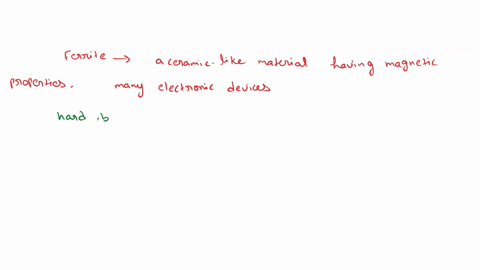 Ferrite → a ceramic-like material having magnetic
properties. many electronic devices
hard ib